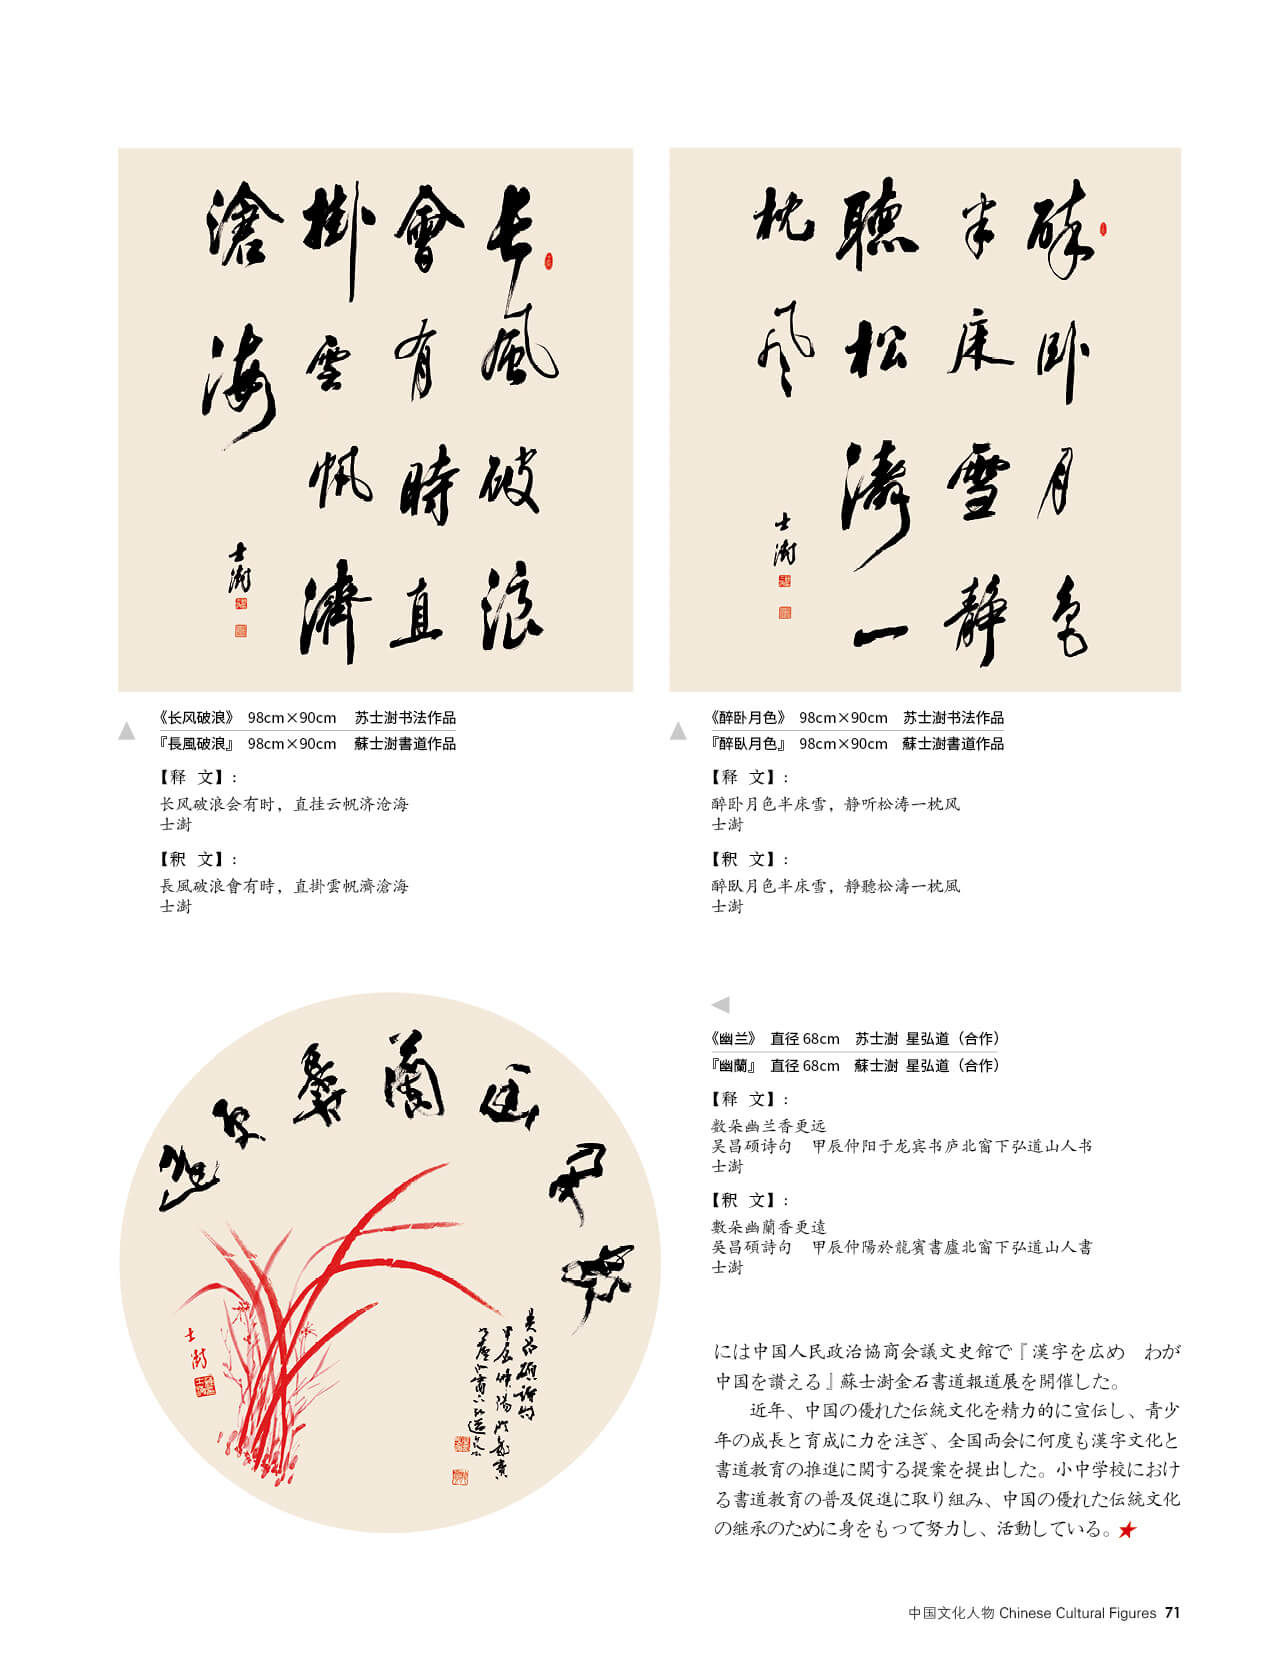 长風破浪
會有時直
掛雲帆濟
滄海
士澍
醉卧月色
半床雪静
聽松濤一
枕风
士澍
《长风破浪》 98cm×90cm 苏士澍书法作品
『長風破浪』 98cm×90cm 蘇士澍書道作品
【释 文】：
长风破浪会有时，直挂云帆济沧海
士澍
【釈 文】：
長風破浪會有時，直掛雲帆濟滄海
士澍
《醉卧月色》 98cm×90cm 苏士澍书法作品
『醉臥月色』 98cm×90cm 蘇士澍書道作品
【释 文】：
醉卧月色半床雪，静听松涛一枕风
士澍
【釈 文】：
醉臥月色半床雪，靜聽松濤一枕風
士澍
數朵幽蘭香更遠
吴昌碩詩句
甲辰仲陽於龍賓
書廬北窗下弘道山人书
士澍
《幽兰》 直径 68cm 苏士澍 星弘道（合作）
『幽蘭』 直径 68cm 蘇士澍 星弘道（合作）
【释 文】：
数朵幽兰香更远
吴昌硕诗句 甲辰仲阳于龙宾书庐北窗下弘道山人书
士澍
【釈 文】：
數朵幽蘭香更遠
吳昌碩詩句 甲辰仲陽於龍賓書廬北窗下弘道山人書
士澍
には中国人民政治協商会議文史館で『漢字を広め　わが
中国を讃える』蘇士澍金石書道報道展を開催した。
近年、中国の優れた伝統文化を精力的に宣伝し、青少
年の成長と育成に力を注ぎ、全国両会に何度も漢字文化と
書道教育の推進に関する提案を提出した。小中学校におけ
る書道教育の普及促進に取り組み、中国の優れた伝統文化
の継承のために身をもって努力し、活動している。
中国文化人物 Chinese Cultural Figures 71